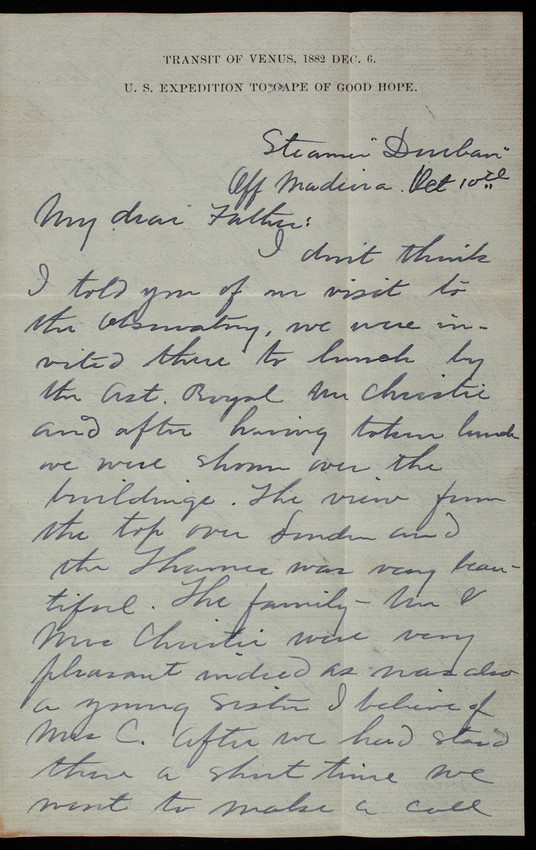 TRANSIT OF VENUS, 1882 DEC. 6.
U. S. EXPEDITION TO CAPE OF GOOD HOPE.
Steamer "Durban"
Off Madeira. Oct 10th
My dear Father:
I don't think
I told you of our visit to
the Observatory, we were in-
vited there to lunch by
the Ast. Royal Mr Christie
and after having taken lunch
we were shown over the
buildings. The view from
the top over London and
the Thames was very beau-
tiful. The family - Mr &
Mrs Christie were very
pleasant indeed as was also
a young sister I believe of
Mrs C. After we had staid
there a short time we
went to make a call